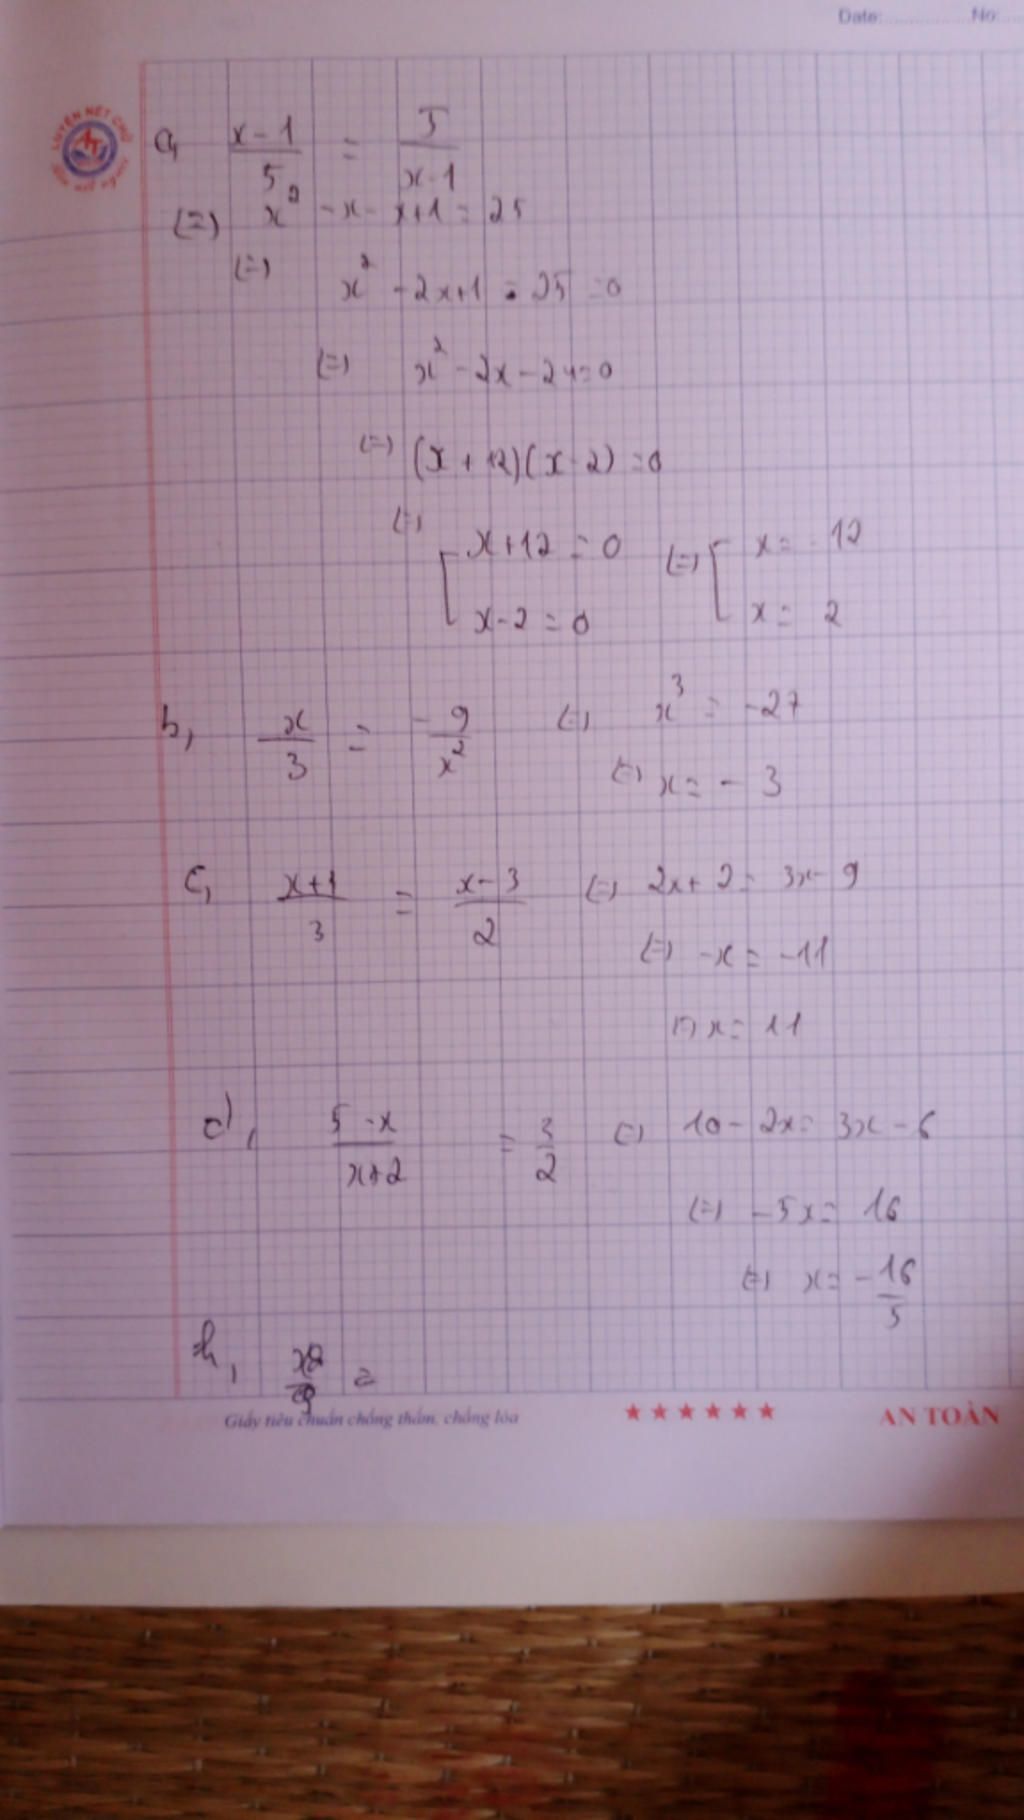 Date: ............ No: ......
LUYỆN NÉT CHỮ
AT
a, x - 1 / 5 = 5 / x - 1
(=) x² - x - x + 1 = 25
(=) x² - 2x + 1 - 25 = 0
(=) x² - 2x - 24 = 0
(=) (x + 12)(x - 2) = 0
(=) [ x + 12 = 0 (=) [ x = - 12
x - 2 = 0 x = 2
b, x / 3 = - 9 / x² (=) x³ = - 27
(=) x = - 3
c, x + 1 / 3 = x - 3 / 2 (=) 2x + 2 = 3x - 9
(=) - x = - 11
(=) x = 11
d, 5 - x / x + 2 = 3 / 2 (=) 10 - 2x = 3x - 6
(=) - 5x = 16
(=) x = - 16 / 5
h, =
Giấy tiêu chuẩn chống thấm, chống lóa ★★★★★★ AN TOÀN